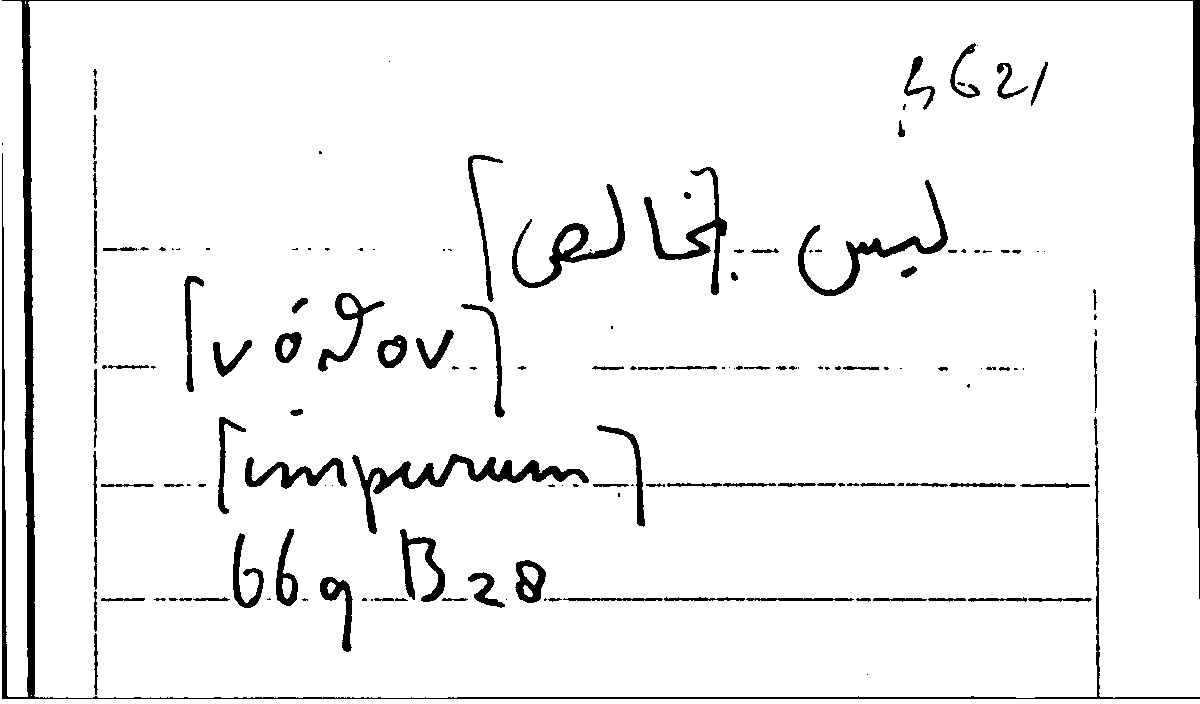 5621
ليس [بخالص]
[νόθον]
[impurum]
669 B 28